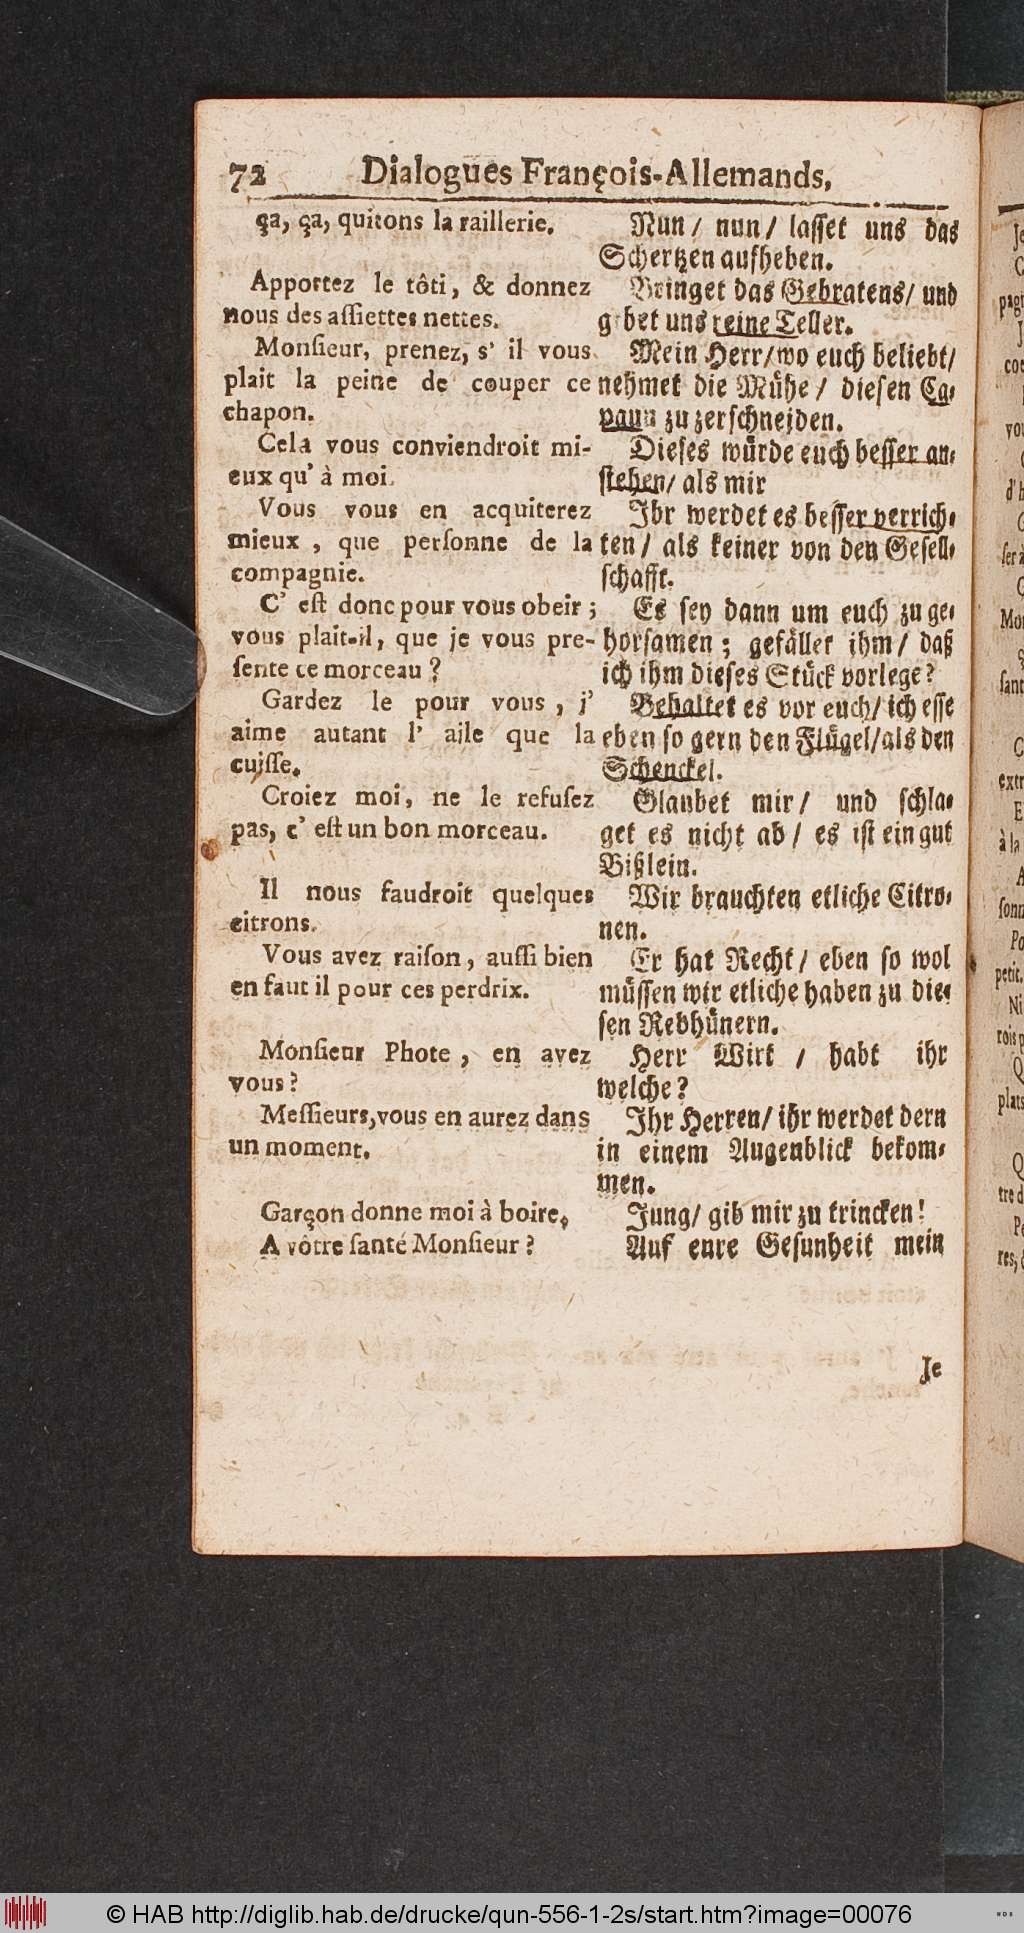 72 Dialogues François-Allemands,
ça, ça, quitons la raillerie.
Apportez le tôti, & donnez
nous des aſſiettes nettes.
Monſieur, prenez, s' il vous
plait la peine de couper ce
chapon.
Cela vous conviendroit mi-
eux qu' à moi.
Vous vous en acquiterez
mieux , que perſonne de la
compagnie.
C' eſt donc pour vous obeir ;
vous plait-il, que je vous pre-
ſente ce morceau ?
Gardez le pour vous , j'
aime autant l' aile que la
cuiſſe.
Croiez moi, ne le refuſez
pas, c' eſt un bon morceau.
Il nous faudroit quelques
citrons.
Vous avez raiſon, auſſi bien
en faut il pour ces perdrix.
Monſieur l'hote , en avez
vous ?
Meſſieurs, vous en aurez dans
un moment.
Garçon donne moi à boire.
A vôtre ſanté Monſieur ?
Nun/ nun/ laſſet uns das
Schertzen aufheben.
Bringet das Gebratens/ und
gebet uns reine Teller.
Mein Herr/ wo euch beliebt/
nehmet die Mühe/ dieſen Ca-
paun zu zerſchneiden.
Dieſes würde euch beſſer an-
ſtehen/ als mir
Ihr werdet es beſſer verrich-
ten/ als keiner von den Geſell-
ſchafft.
Es ſey dann um euch zu ge-
horſamen ; gefället ihm/ daß
ich ihm dieſes Stück vorlege?
Behaltet es vor euch/ ich eſſe
eben ſo gern den Flügel/ als den
Schenckel.
Glaubet mir/ und ſchla-
get es nicht ab/ es iſt ein gut
Bißlein.
Wir brauchten etliche Citro-
nen.
Er hat Recht/ eben ſo wol
müſſen wir etliche haben zu die-
ſen Rebhünern.
Herr Wirt / habt ihr
welche?
Ihr Herren/ ihr werdet dern
in einem Augenblick bekom-
men.
Jung/ gib mir zu trincken!
Auf eure Geſunheit mein
Je
© HAB http://diglib.hab.de/drucke/qun-556-1-2s/start.htm?image=00076